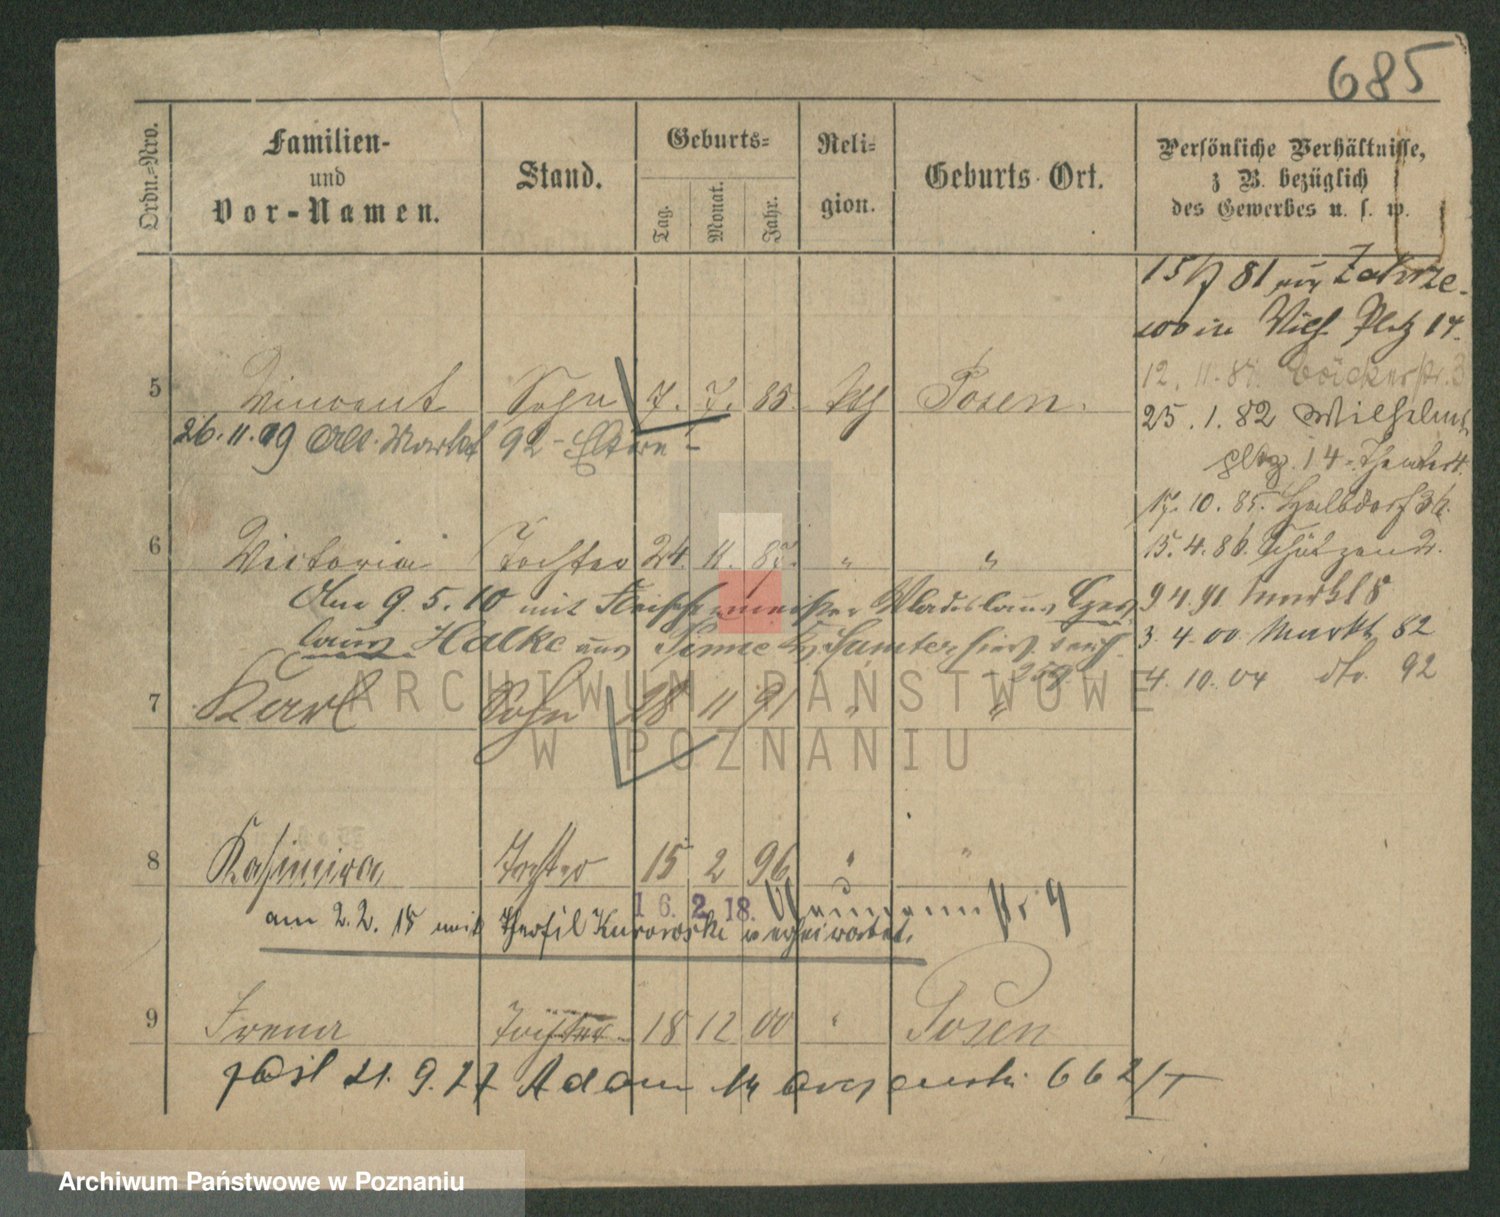 685
Ordn.-Nro.
Familien-
und
Vor-Namen.
Stand.
Geburts-
Tag.
Monat.
Jahr.
Reli-
gion.
Geburts-Ort.
Persönliche Verhältnisse,
z B. bezüglich
des Gewerbes u. s. w.
81 Zabrze
Wilh. Platz 14.
12. 11.
25. 1. 82 Wilhelms
platz. 14
5 Vincent Sohn 7. 7. 85. Posen.
26. 11. 09 Alt. Markt 92 - Eltern -
17. 10. 85. Halbdorf
6 Victoria Tochter 24. 11. 87. " "
15. 4. 86. Schützen
Am 9. 5. 10 mit Fleischermeister Wladislaus
9 4 91 Markt 8
Halke aus Pinne
3. 4. 00 Markt 82
259
4. 10. 04 do. 92
7 Karl Sohn 28 11 91 " "
ARCHIWUM PAŃSTWOWE
W POZNANIU
8 Kasimira Tochter 15 2 96 " "
16. 2. 18. Naumannstr 9
am 2. 2. 18 mit Theofil Kurowski verheiratet.
9 Irena Tochter 18 12 00 " Posen
21. 9. 27 Adam 662/I
Archiwum Państwowe w Poznaniu